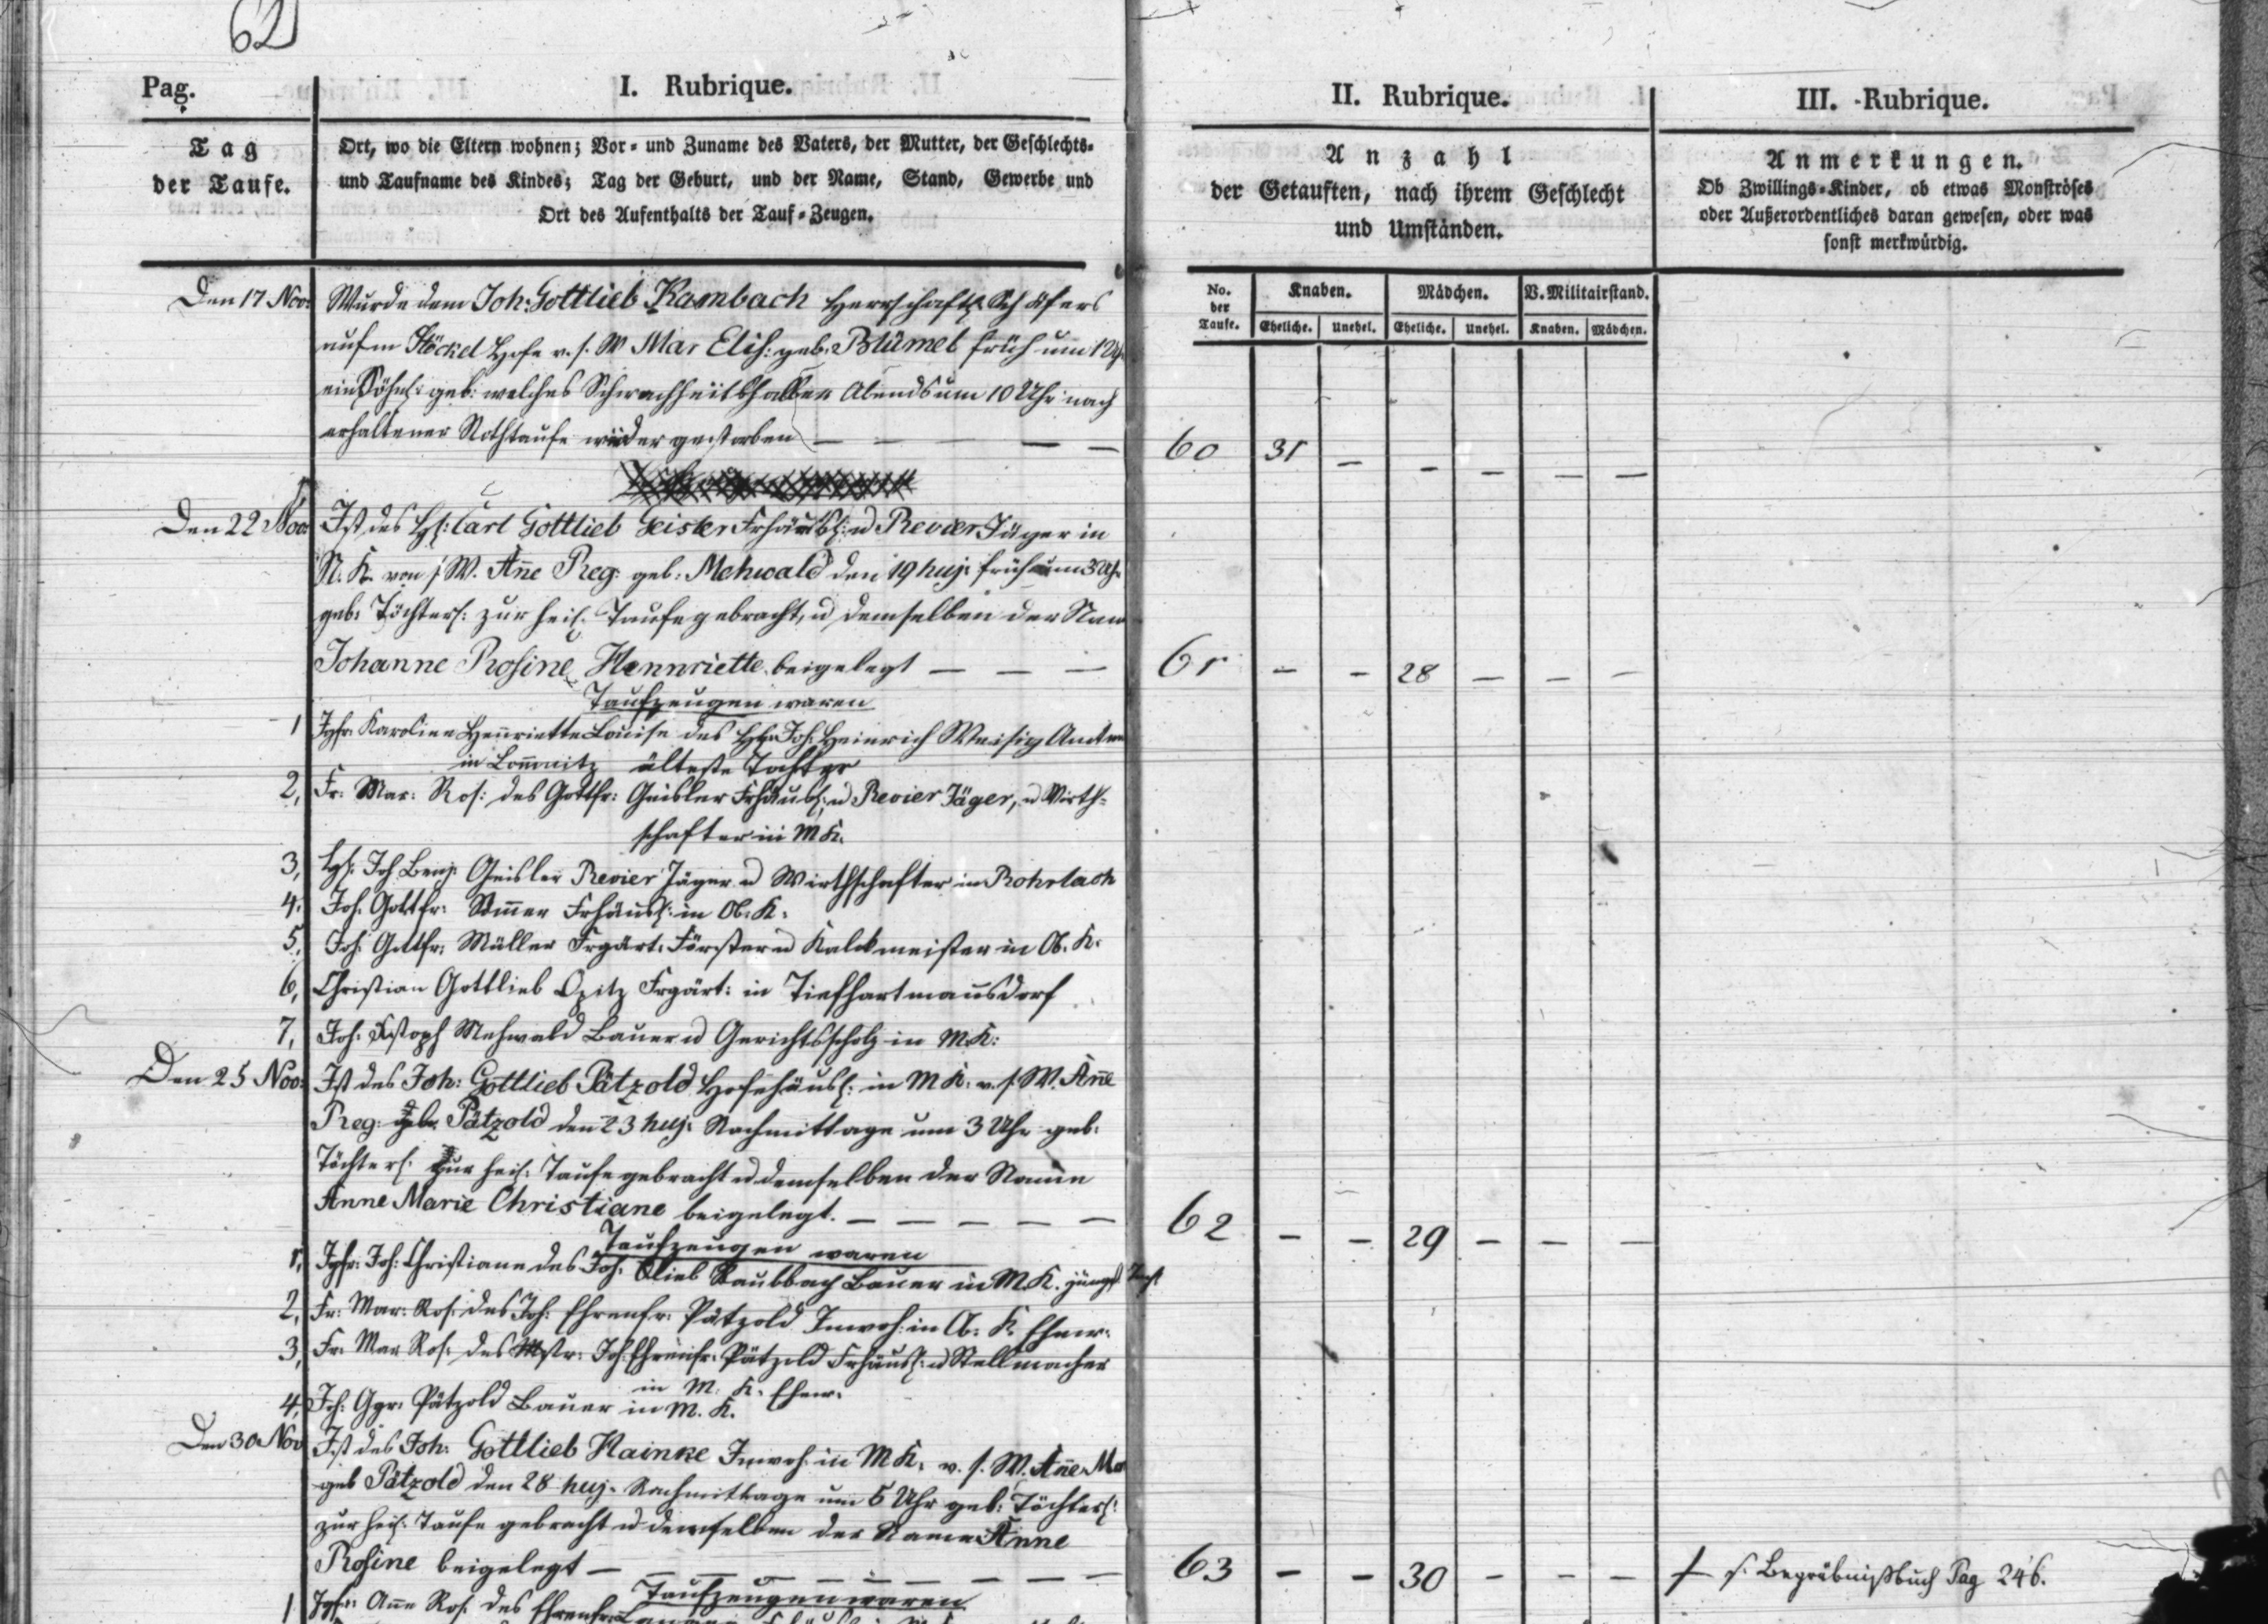 62
Pag.
I. Rubrique.
Tag
der Taufe.
Ort, wo die Eltern wohnen; Vor- und Zuname des Vaters, der Mutter, der Geschlechts-
und Taufname des Kindes; Tag der Geburt, und der Name, Stand, Gewerbe und
Ort des Aufenthalts der Tauf-Zeugen.
II. Rubrique.
Anzahl
der Getauften, nach ihrem Geschlecht
und Umständen.
III. Rubrique.
Anmerkungen.
Ob Zwillings-Kinder, ob etwas Monströses
oder Außerordentliches daran gewesen, oder was
sonst merkwürdig.
No. der Taufe.
Knaben. Mädchen. V. Militairstand.
Eheliche. Unehel. Eheliche. Unehel. Knaben. Mädchen.
Den 17 Nov: Wurde dem Joh: Gottlieb Kambach Herrschaftl. Schäfers
aufm Stöckel Hofe v. s. W Mar Elis: geb: Blümel früh um 1 Uhr
ein Söhnl: geb: welches Schwachheitshalber Abends um 10 Uhr nach
erhaltener Nothtaufe wieder gestorben — — — — 60 31 — — — — —
Den 22 Nov: Ist des H: Carl Gottlieb Geisler Frhäusl: u Revier Jäger in
N. K. von s W. Añe Reg: geb: Mehwald den 19 huj: früh um 3 Uhr
geb: Töchterl: zur heil: Taufe gebracht, u demselben der Nam
Johanne Rosine Hennriette beigelegt — — — 61 — — 28 — — —
Taufzeugen waren
1 Jgfr. Karoline Henriette Louise des H. Joh. Heinrich Weisig Amtm
in Lom̃nitz älteste Tochter
2, Fr. Mar: Ros: des Gottfr: Geisler Frhäusl: u Revier Jäger, u Wirth-
schafter in M K.
3, H. Joh Benj: Geisler Revier Jäger u Wirthschafter in Rohrlach
4, Joh. Gottfr: Frhäusl: in Ob. K.
5, Joh: Gottfr: Müller Frgärt: Förster u Kalckmeister in Ob. K.
6, Christian Gottlieb Opitz Frgärt: in Tiefhartmañsdorf
7, Joh. Xstoph Mehwald Bauer u Gerichtsscholz in M.K:
Den 25 Nov: Ist des Joh: Gottlieb Pätzold Hofehäusl: in M K. v. s. W. Añe
Reg: geb. Pätzold den 23 huj: Nachmittage um 3 Uhr geb:
Töchterl: zur heil: Taufe gebracht u demselben der Name
Anne Marie Christiane beigelegt. — — — — — 62 — — 29 — — —
Taufzeugen waren
1, Jgfr: Joh: Christiane des Joh. Glieb Raubbach Bauer in M.K. jüngst Toch
2, Fr: Mar: Ros: des Joh: Ehrenfr: Pätzold Inwoh: in Ob. K. Ehew.
3, Fr. Mar Ros: des Mstr: Joh: Ehrenfr: Pätzold Frhäusl: u Stellmacher
in M. K. Ehew.
4, Joh: Ggr: Pätzold Bauer in M. K.
Den 30 Nov Ist des Joh: Gottlieb Hainke Inwoh: in M K. v. s. W. Añe Ma
geb Pätzold den 28 huj. Nachmittage um 5 Uhr geb: Töchterl:
zur heil: Taufe gebracht u demselben der Name Anne
Rosine beigelegt — — — — — — — 63 — — 30 — — — † s. Begräbnißbuch Pag 246.
Taufzeugen waren
1 Jgfr: Añe Ros. des Ehrenfr: